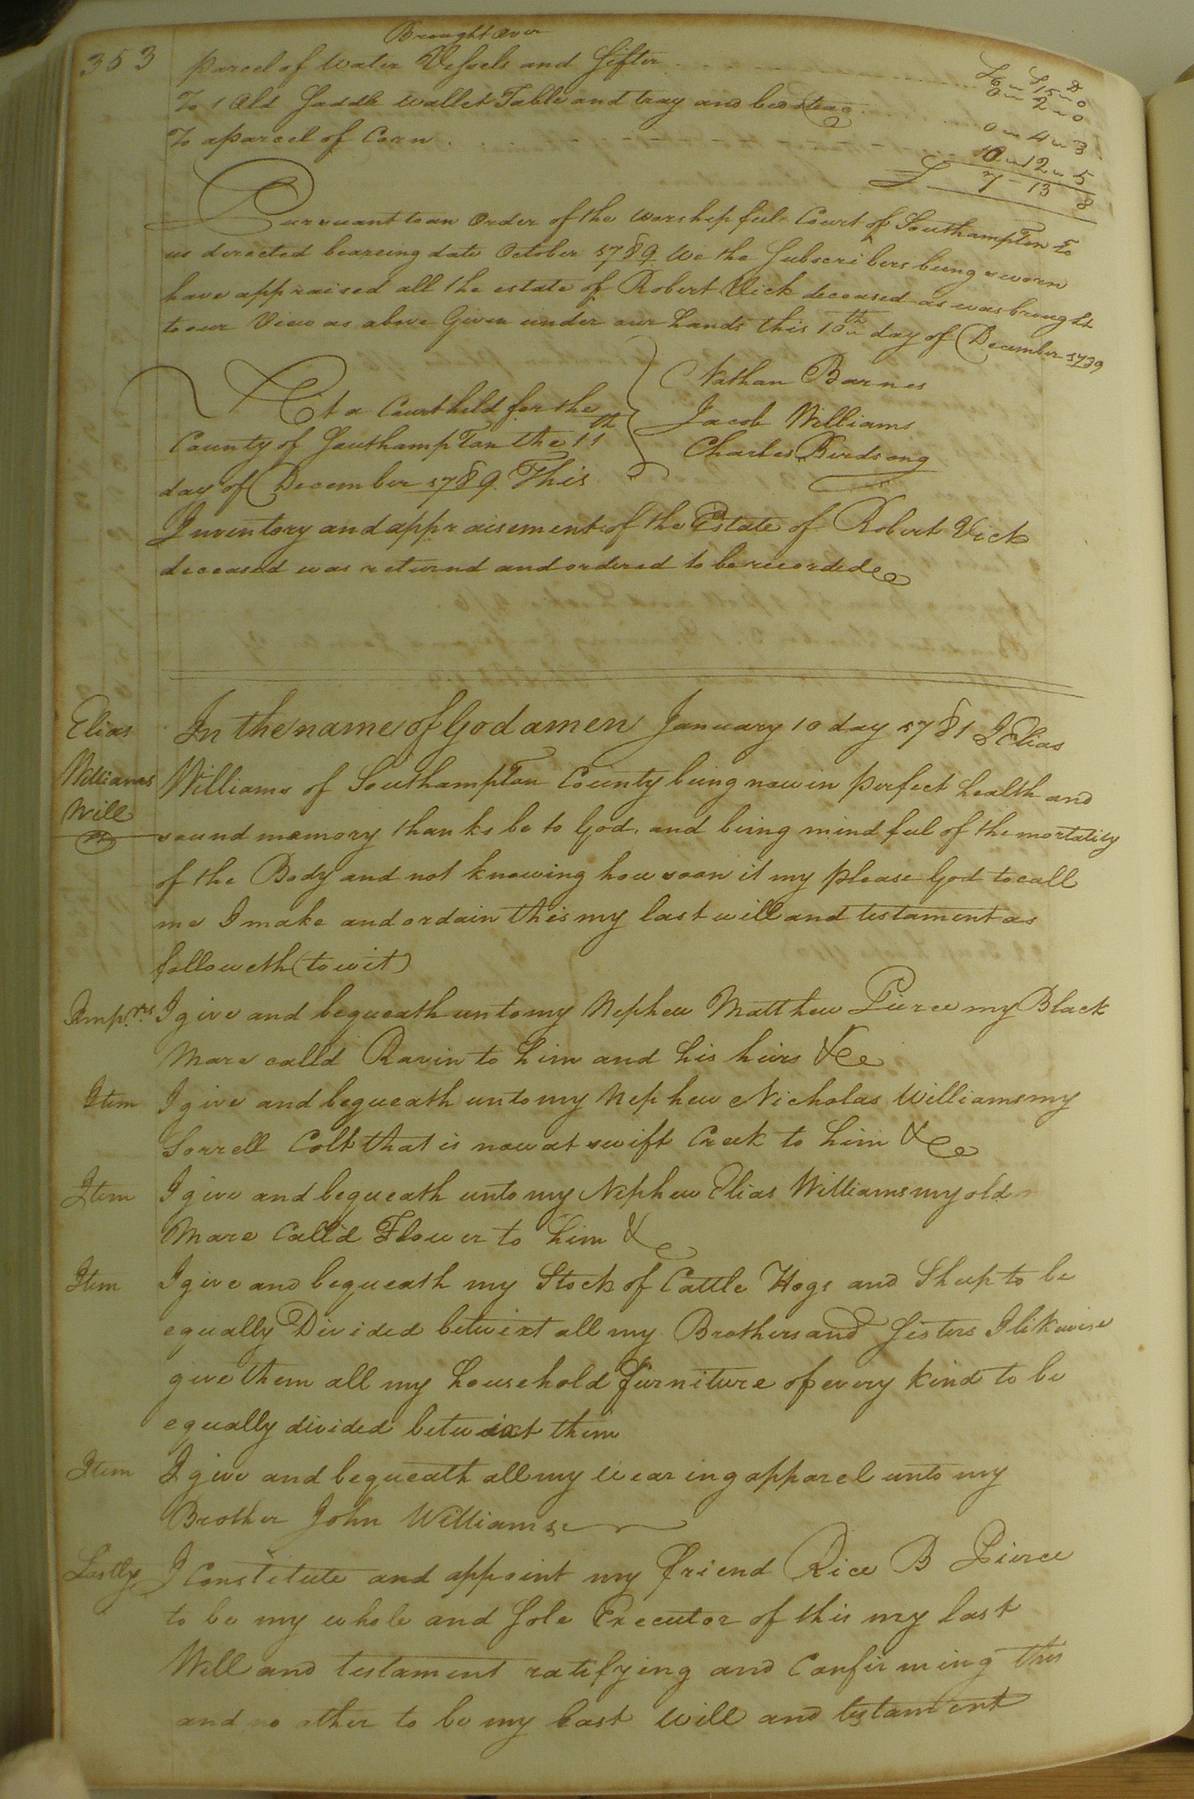 353
Brought Over
£ S D
parcel of water Vessels and Sifter 6 " 15 " 0
To 1 Old Saddle wallet Table and tray and bedstead 0 " 2 " 0
To a parcel of Corn 0 " 4 " 3
12 " 5
£ 7 - 13 8
Pursuant to an Order of the worshipful Court of Southampton to
us directed bearing date October 1789 We the Subscribers being sworn
have appraised all the estate of Robert Vick deceased as was brought
to our View as above Given under our hands this 10th day of December 1789
Nathan Barnes
Jacob Williams
Charles Birdsong
At a Court held for the
County of Southampton the 11th
day of December 1789 This
Inventory and appraisement of the Estate of Robert Vick
deceased was returnd and ordered to be recorded
Elias
Williams
Will
In the name of God amen January 10 day 1781 I Elias
Williams of Southampton County being now in perfect health and
sound memory thanks be to God, and being mindful of the mortality
of the Body and not knowing how soon it my please God to call
me I make and ordain this my last will and testament as
followeth (to wit)
Imp.rs I give and bequeath unto my Nephew Matthew Pierce my Black
Mare calld Ravin to him and his heirs &c
Item I give and bequeath unto my Nephew Nicholas Williams my
Sorrell Colt that is now at swift Creek to him &c
Item I give and bequeath unto my Nephew Elias Williams my old
Mare Call'd Flower to him &c
Item I give and bequeath my Stock of Cattle Hogs and Sheep to be
equally Divided betwixt all my Brothers and Sisters I likewise
give them all my household furniture of every kind to be
equally divided betwixt them
Item I give and bequeath all my wearing apparel unto my
Brother John Williams
Lastly I Constitute and appoint my friend Rice B Pierce
to be my whole and Sole Executor of this my last
Will and testament ratifying and Confirming this
and no other to be my last will and testament